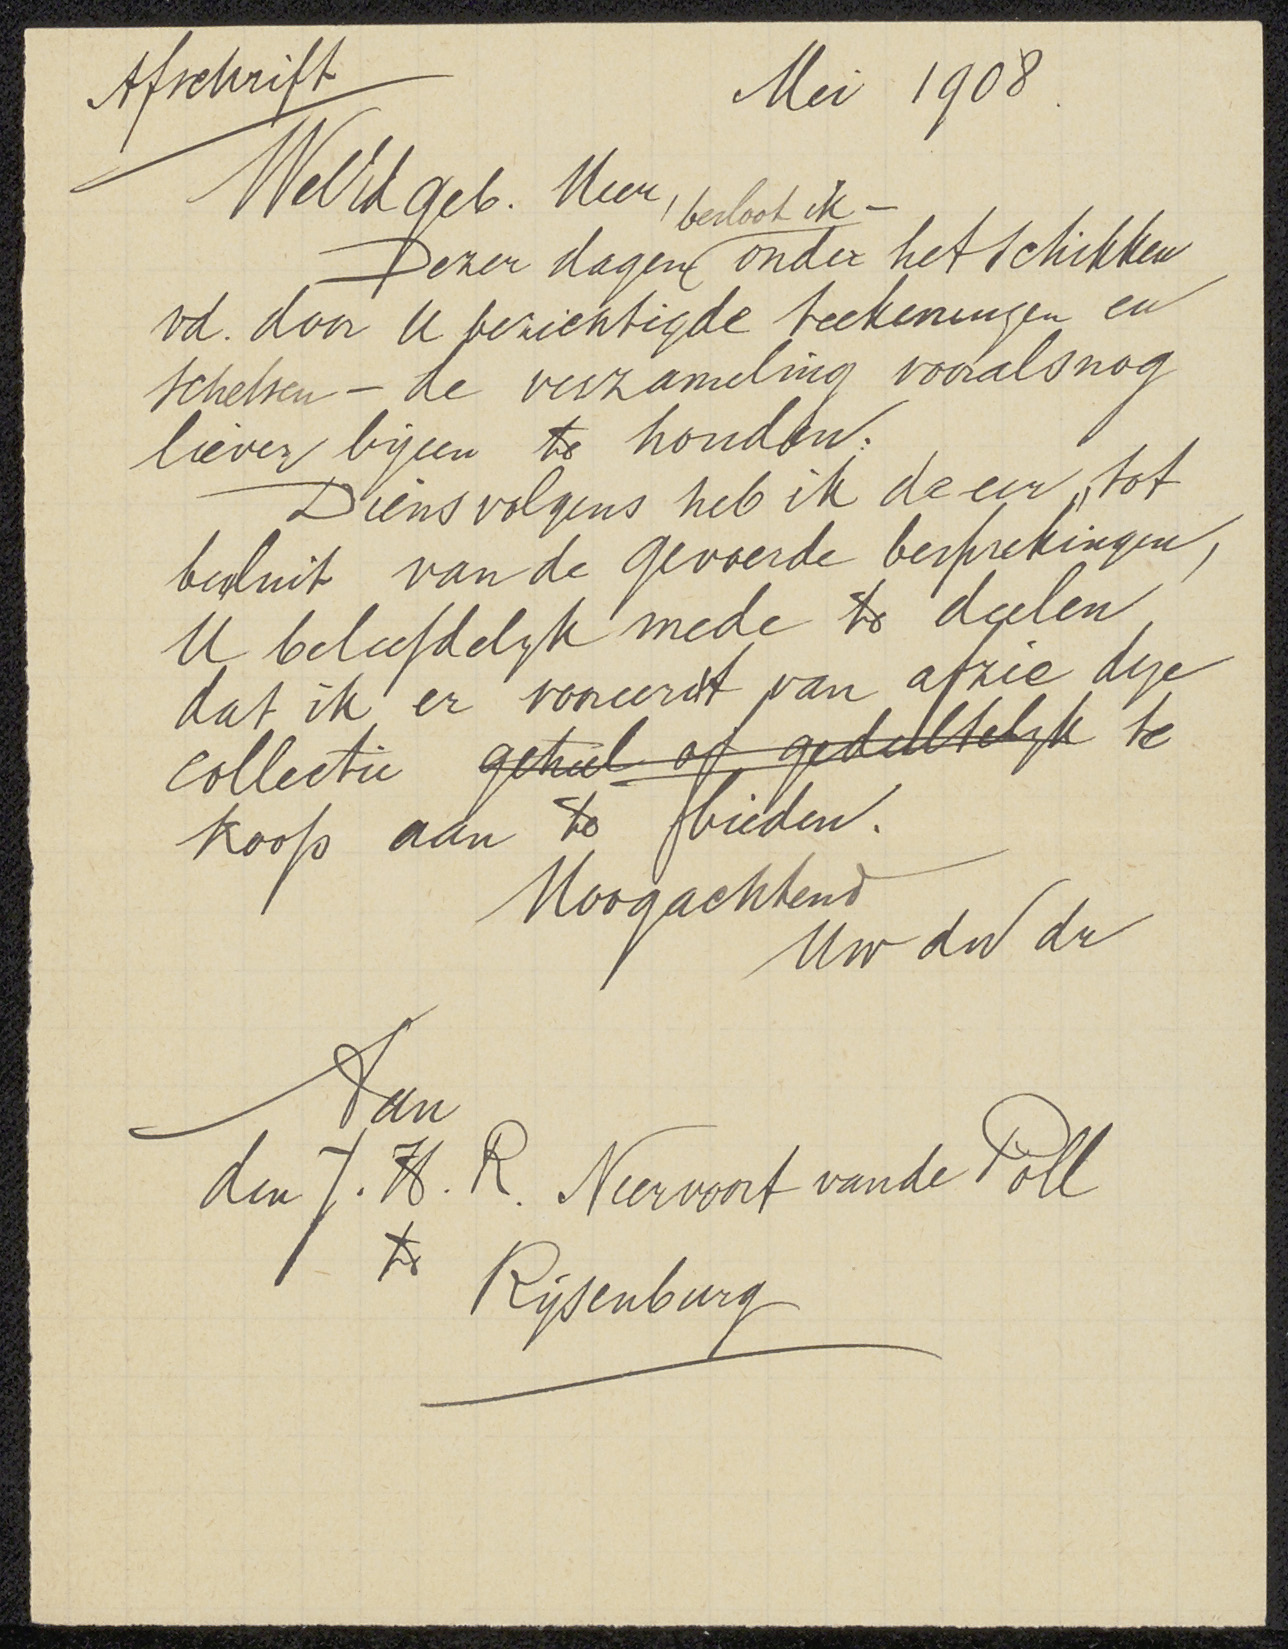 Afschrift
Mei 1908.
WelEd geb. Heer,
besloot ik –
Dezer dagen onder het schikken
vd. door U bezichtigde teekeningen en
schetsen – de verzameling vooralsnog
liever bijeen te houden.
Diensvolgens heb ik de eer, tot
besluit van de gevoerde besprekingen,
U beleefdelyk mede te deelen
dat ik er vooreerst van afzie deze
collectie geheel of gedeeltelyk te
koop aan te bieden.
Hoogachtend
Uw dw dr
Aan
den J. H. R. Neervoort van de Poll
te
Rijsenburg